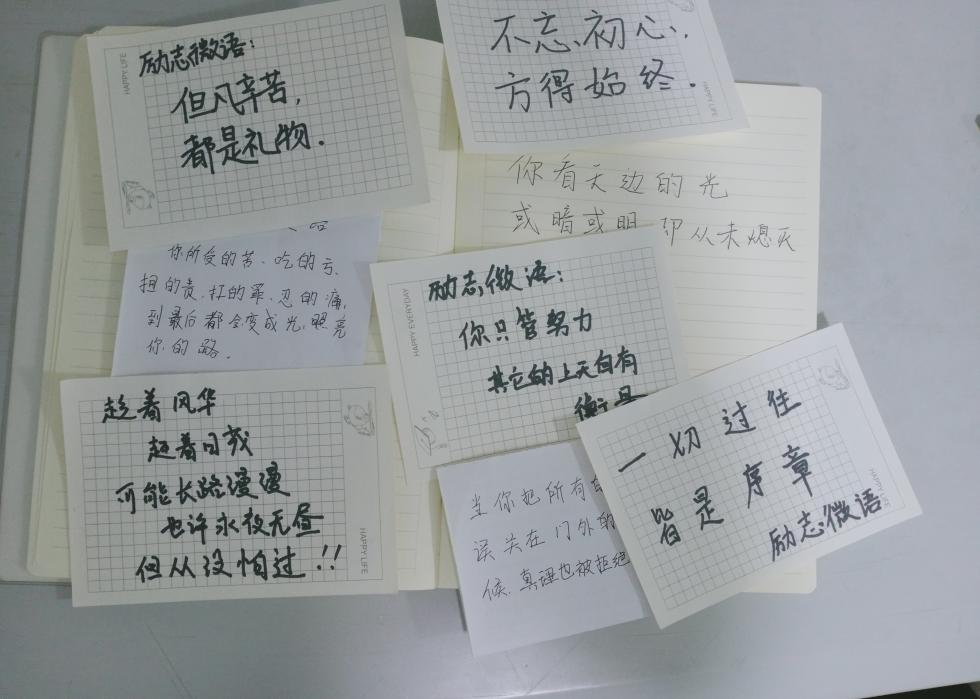 励志微语:
但凡辛苦,
都是礼物.
HAPPY LIFE
不忘初心,
方得始终.
HAPPY LIFE
你看天边的光
或暗或明 却从未熄灭
你所受的苦、吃的亏、
担的责、扛的罪、忍的痛,
到最后都会变成光,照亮
你的路.
励志微语:
你只管努力
其它的上天自有
衡量
HAPPY EVERYDAY
趁着风华
趁着日
可能长路漫漫
也许永夜无昼
但从没怕过!!
HAPPY LIFE
一切过往
皆是序章
励志微语
HAPPY LIFE
当你把所有的
误关在门外的
候.真理也被拒绝